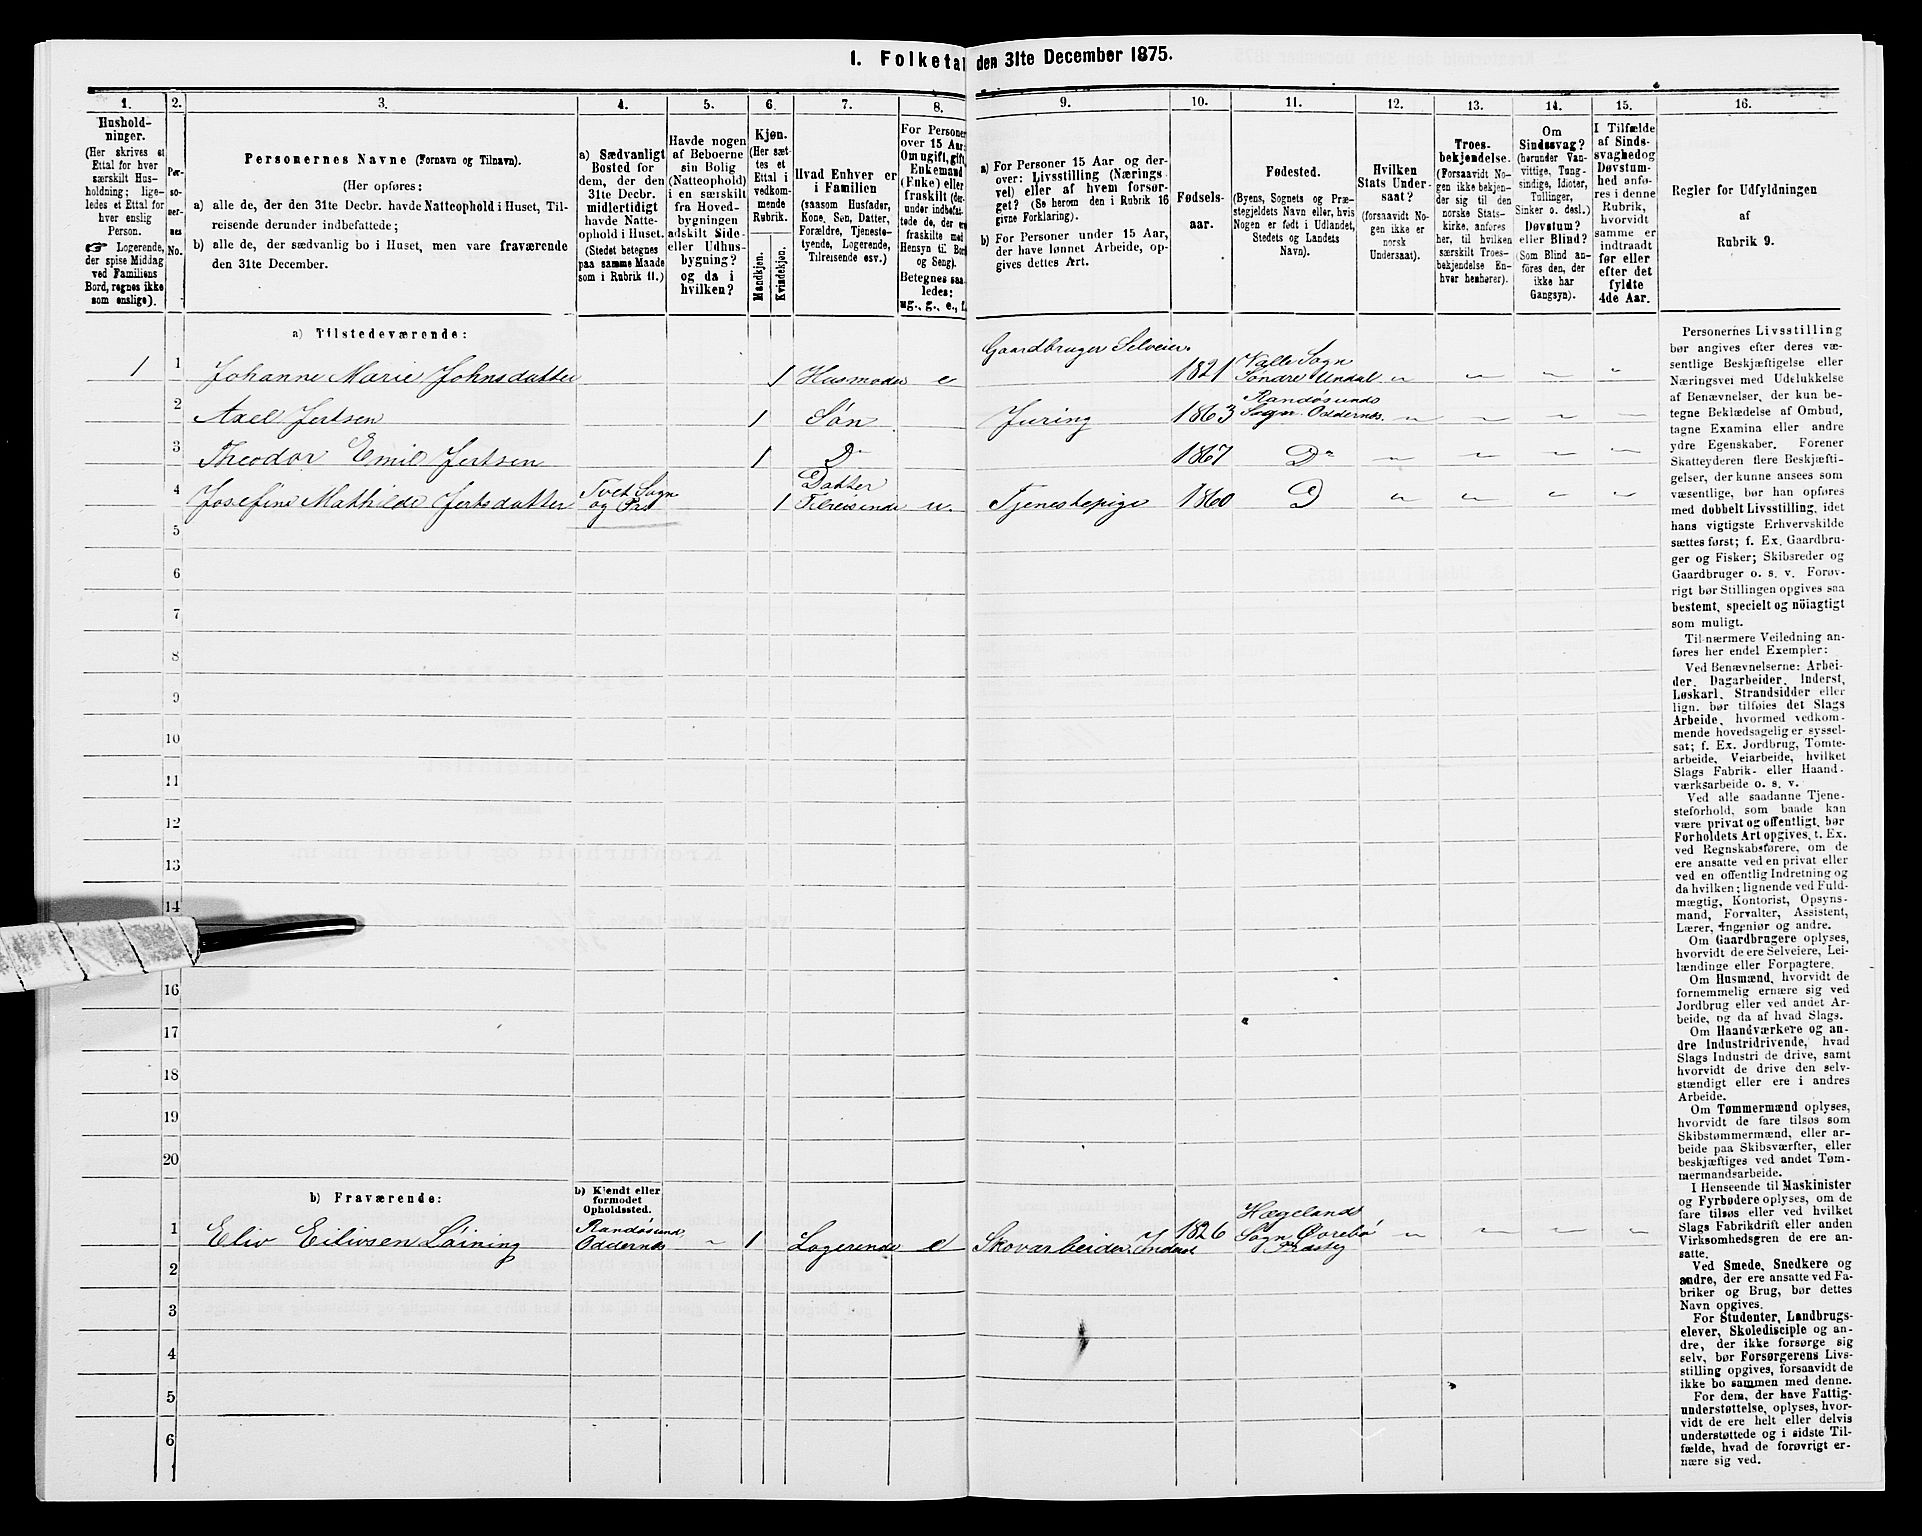 1. Folketal den 31te December 1875.
1.
2.
3.
4.
5.
6.
7.
8.
9.
10.
11.
12.
13.
14.
15.
16.
Hushold-
ninger.
(Her skrives et
Ettal for hver
særskilt Hus-
holdning; lige-
ledes et Ettal for
hver enslig
Person.
☞ Logerende,
der spise Middag
ved Familiens
Bord, regnes ikke
som enslige).
Per-
so-
ner-
nes
No.
Personernes Navne (Fornavn og Tilnavn).
(Her opføres:
a) alle de, der den 31te Decbr. havde Natteophold i Huset, Til-
reisende derunder indbefattede;
b) alle de, der sædvanlig bo i Huset, men vare fraværende
den 31te December.
a) Sædvanligt
Bosted for
dem, der den
31te Decbr.
midlertidigt
havde Natte-
ophold i Huset.
(Stedet betegnes
paa samme Maade
som i Rubrik 11.)
Havde nogen
af Beboerne
sin Bolig
(Natteophold)
i en særskilt
fra Hoved-
bygningen
adskilt Side-
eller Udhus-
bygning?
og da i
hvilken?
Kjøn.
(Her sæt-
tes et
Ettal i
vedkom-
mende
Rubrik.
Mandkjøn.
Kvindekjøn.
Hvad Enhver er
i Familien
(saasom Husfader,
Kone, Søn, Datter,
Forældre, Tjeneste-
tyende, Logerende,
Tilreisende osv.)
For Personer
over 15 Aar:
Om ugift, gift,
Enkemand
(Enke) eller
fraskilt (der-
under indbefat-
tede de, der ere
fraskilte med
Hensyn til Bord
og Seng).
Betegnes saa-
ledes:
ug., g., e., f.
a) For Personer 15 Aar og der-
over: Livsstilling (Nærings-
vei) eller af hvem forsør-
get? (Se herom den i Rubrik 16
givne Forklaring).
b) For Personer under 15 Aar,
der have lønnet Arbeide, op-
gives dettes Art.
Fødsels-
aar.
Fødested.
(Byens, Sognets og Præ-
stegjeldets Navn eller, hvis
Nogen er født i Udlandet,
Stedets og Landets
Navn).
Hvilken
Stats Under-
saat?
(forsaavidt No-
gen ikke er
norsk
Undersaat).
Troes-
bekjendelse.
(Forsaavidt No-
gen ikke bekjen-
der sig til den
norske Stats-
kirke, anføres
her, til hvilken
særskilt Troes-
bekjendelse En-
hver henhører).
Om
Sindssvag?
(herunder Van-
vittige, Tung-
sindige, Idioter,
Tullinger,
Sinker o. desl.)
Døvstum?
eller Blind?
(Som Blind an-
føres den, der
ikke har
Gangsyn).
I Tilfælde
af Sinds-
svaghed og
Døvstum-
hed anfø-
res i denne
Rubrik,
hvorvidt
samme er
indtraadt
før eller
efter det
fyldte
4de Aar.
Regler for Udfyldningen
af
Rubrik 9.
a) Tilstedeværende:
1 1 Johanne Marie Johnsdatter 1 Husmoder e Gaardbruger Selveier. 1821 Valle Sogn Søndre Undal " " " "
2 Axel Jertsen 1 Søn Juring 1863 Randøsunds Sogn Oddernes. " " " "
3 Theodor Emil Jertsen 1 Do 1867 Do " " " "
4 Josefine Mathilde Jertsdatter Tvet Sogn og Prs 1 Datter Tilreisende u. Tjenestepige 1860 D " " " "
5
6
7
8
9
10
11
12
13
14
16
17
18
19
20
b) Fraværende:
b) Kjendt eller
formodet
Opholdssted.
1 Eliv Eilivsen Løining Randøsund Oddernes " 1 Logerende e Skovarbeider Inderst 1826 Hægelands Sogn Øvrebø Præstg " " " "
2
3
4
5
6
Personernes Livsstilling
bør angives efter deres væ-
sentlige Beskjæftigelse eller
Næringsvei med Udelukkelse
af Benævnelser, der kun be-
tegne Beklædelse af Ombud,
tagne Examina eller andre
ydre Egenskaber. Forener
Skatteyderen flere Beskjæfti-
gelser, der kunne ansees som
væsentlige, bør han opføres
med dobbelt Livsstilling, idet
hans vigtigste Erhvervskilde
sættes først; f. Ex. Gaardbru-
ger og Fisker; Skibsreder og
Gaardbruger o. s. v. Forøv-
rigt bør Stillingen opgives saa
bestemt, specielt og nöiagtigt
som muligt.
Til nærmere Veiledning an-
føres her endel Exempler:
Ved Benævnelserne: Arbei-
der, Dagarbeider, Inderst,
Løskarl, Strandsidder eller
lign. bør tilføies det Slags
Arbeide, hvormed vedkom-
mende hovedsagelig er syssel-
sat; f. Ex. Jordbrug, Tomte-
arbeide, Veiarbeide, hvilket
Slags Fabrik- eller Haand-
værksarbeide o. s. v.
Ved alle saadanne Tjene-
steforhold, som baade kan
være privat og offentligt, bør
Forholdets Art opgives, t. Ex.
ved Regnskabsførere, om de
ere ansatte ved en privat eller
ved en offentlig Indretning og
da hvilken; lignende ved Fuld-
mægtig, Kontorist, Opsyns-
mand, Forvalter, Assistent,
Lærer, Ingeniør og andre.
Om Gaardbrugere oplyses,
hvorvidt de ere Selveiere, Lei-
lændinge eller Forpagtere.
Om Husmænd, hvorvidt de
fornemmelig ernære sig ved
Jordbrug eller ved andet Ar-
beide, og da af hvad Slags.
Om Haandværkere og an-
dre Industridrivende, hvad
Slags Industri de drive, samt
hvorvidt de drive den selv-
stændigt eller ere i andres
Arbeide.
Om Tømmermænd oplyses,
hvorvidt de fare tilsøs som
Skibstømmermænd, eller ar-
beide paa Skibsværfter, eller
beskjæftiges ved andet Tøm-
mermandsarbeide.
I Henseende til Maskinister
og Fyrbødere oplyses, om de
fare tilsøs eller ved hvilket
Slags Fabrikdrift eller anden
Virksomhedsgren de ere an-
satte.
Ved Smede, Snedkere og
andre, der ere ansatte ved Fa-
briker og Brug, bør dettes
Navn opgives.
For Studenter, Landbrugs-
elever, Skoledisciple og an-
dre, der ikke forsørge sig
selv, bør Forsørgerens Livs-
stilling opgives, forsaavidt de
ikke bo sammen med denne.
For dem, der have Fattig-
understøttelse, oplyses, hvor-
vidt de ere helt eller delvis
understøttede og i sidste Til-
fælde, hvad de forøvrigt er-
nære sig ved.